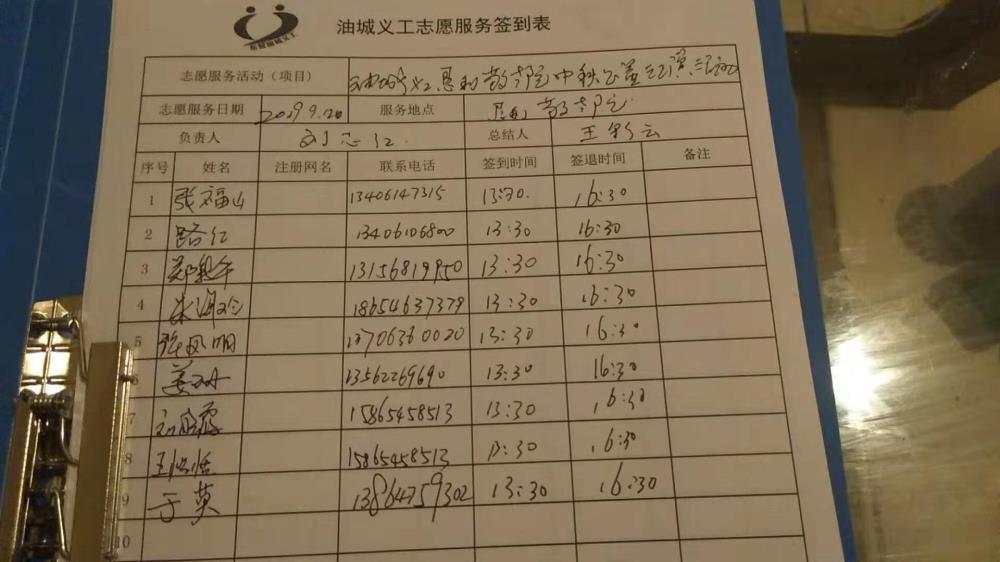 油城义工志愿服务签到表
东营油城义工
志愿服务活动（项目） 油城义工恩和敬老院中秋公益
志愿服务日期 2019 9.20 服务地点 敬老院
负责人 总结人 王彩云
序号 姓名 注册网名 联系电话 签到时间 签退时间 备注
1 张福山 13406147315 13:30. 16:30
2 路红 13406106800 13:30 16:30
3 13156819950 13:30 16:30
4 18654637379 13:30 16:30
5 张凤明 13706360020 13:30 16:30
6 13562269690 13:30 16:30
7 15865458513 13:30 16:30
8 15865458513 13:30 16:30
9 于英 13864759302 13:30 16:30
10